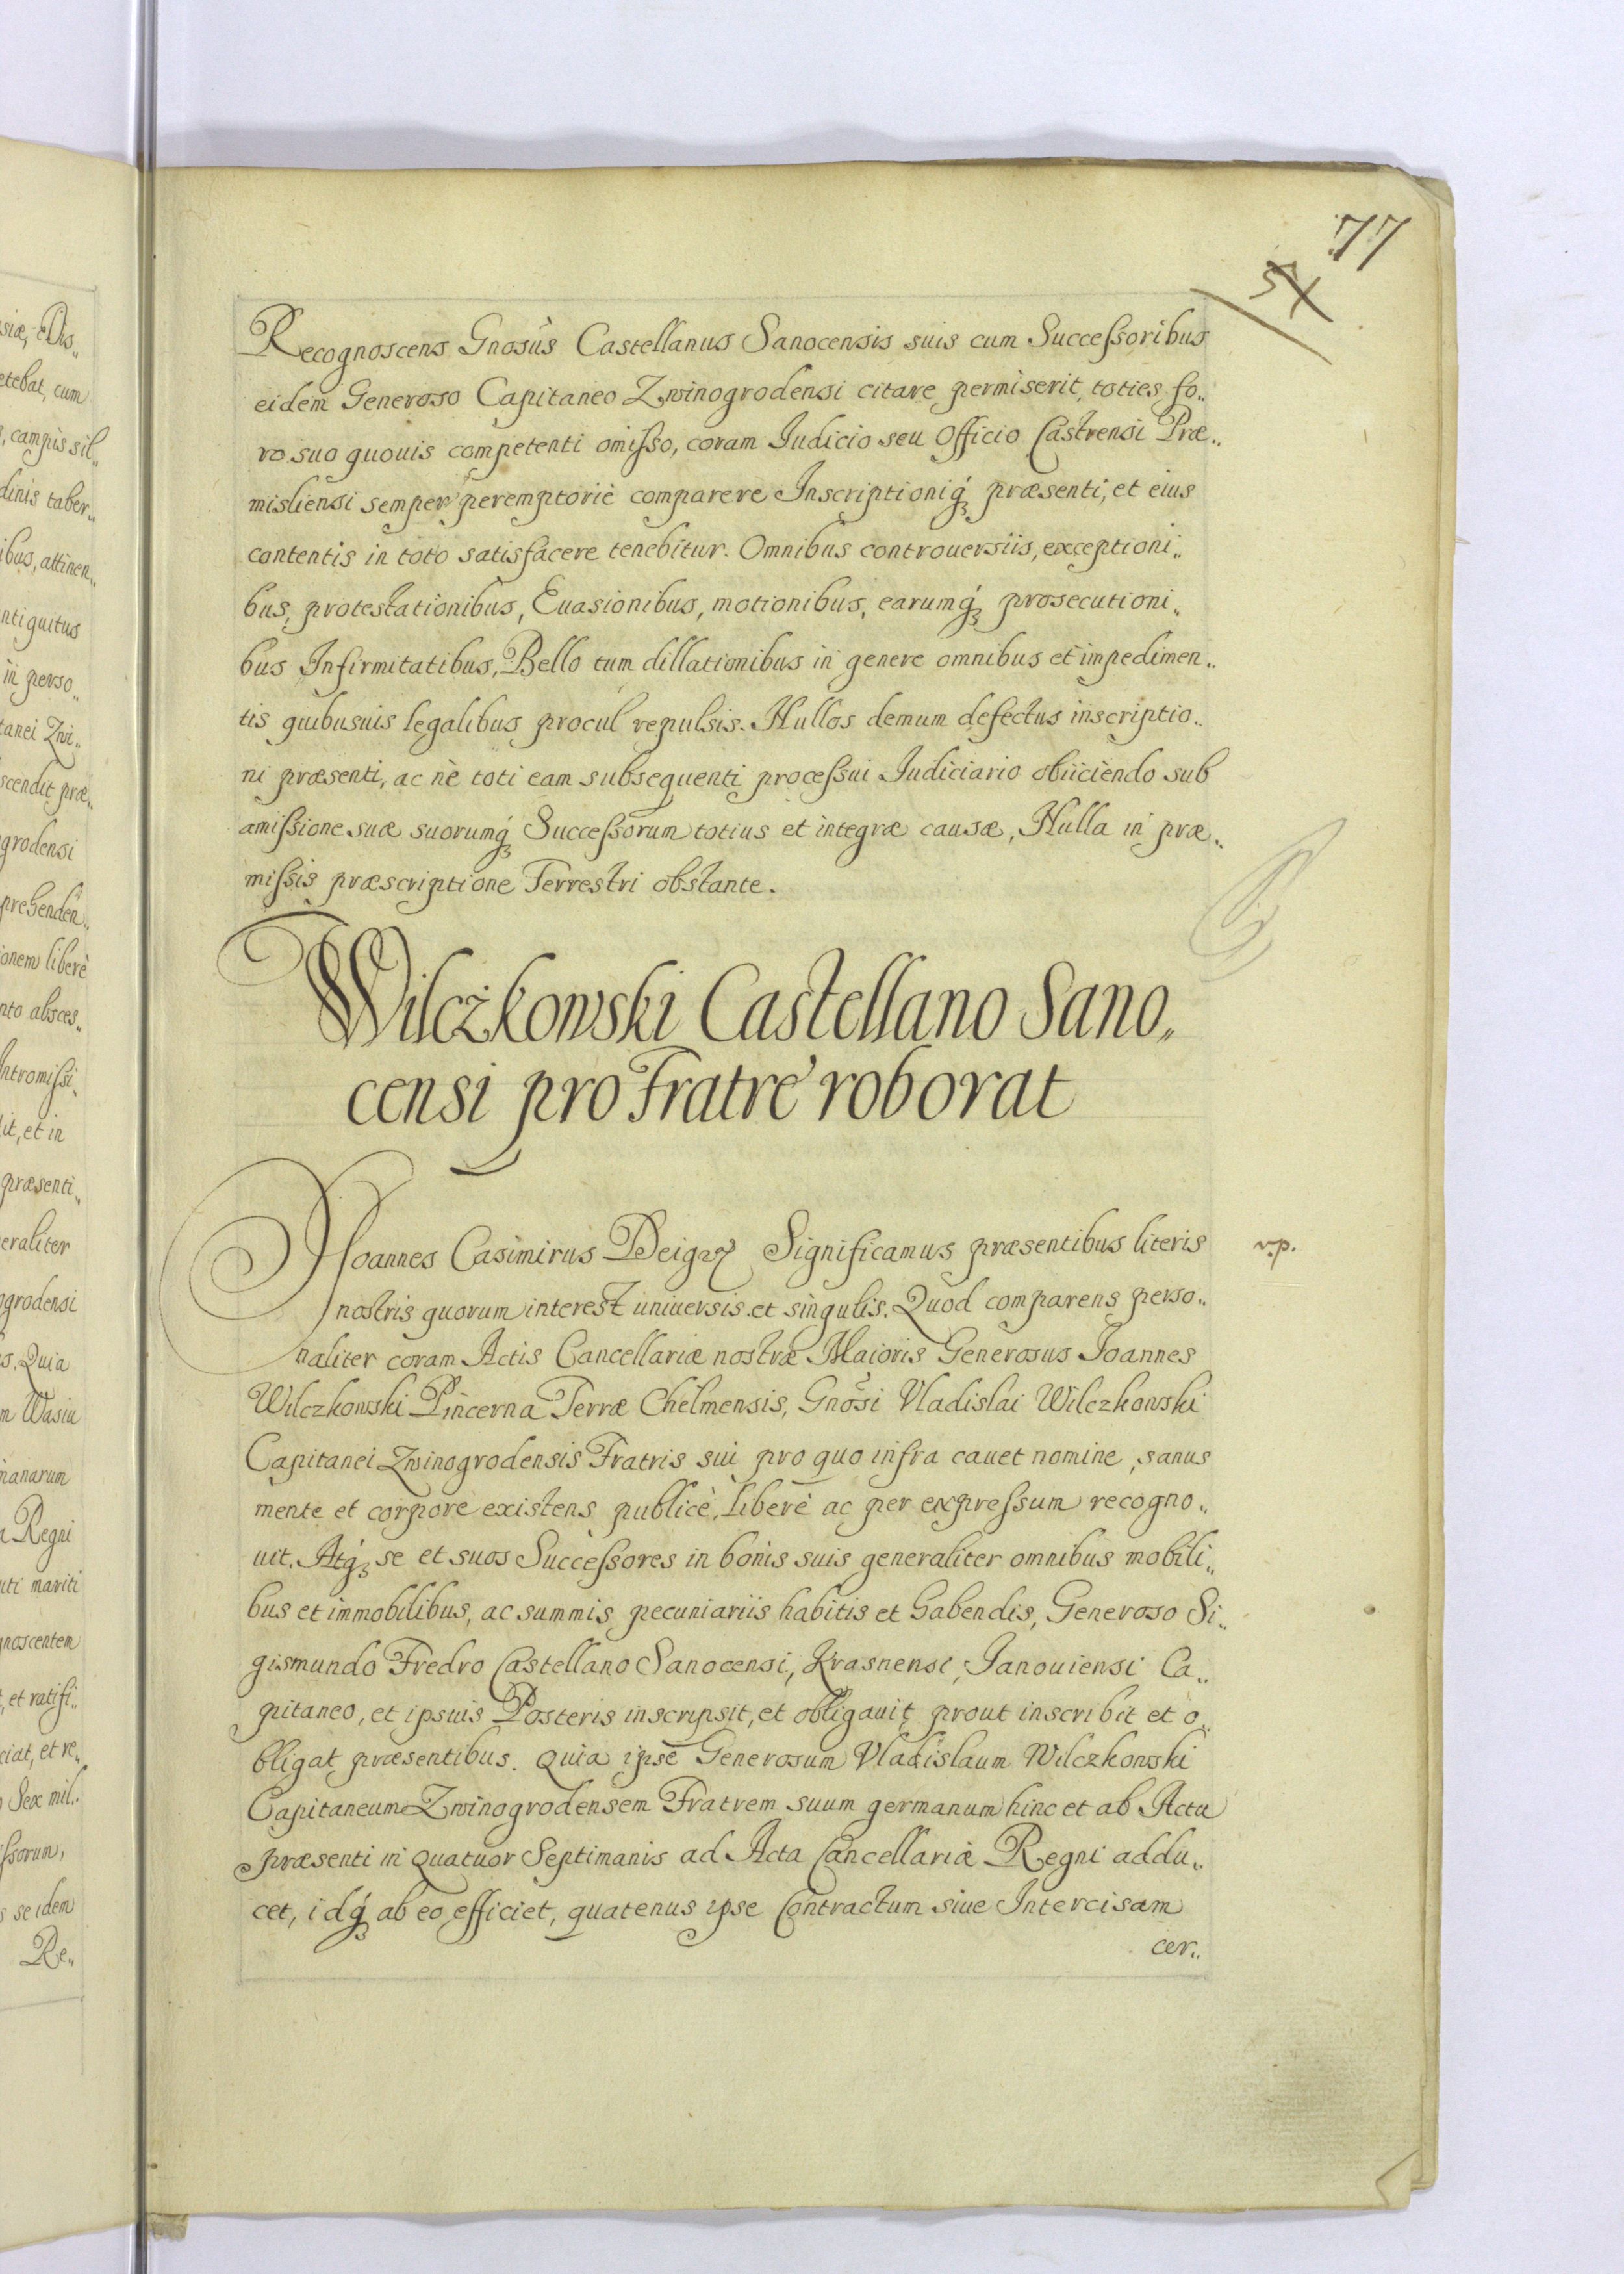 77
54
Recognoscens Gnosus Castellanus Sanocensis suis cum Successoribus
eidem Generoso Capitaneo Zwinogrodensi citare permiserit, toties fo„
ro suo quouis competenti omisso, coram Iudicio seu Officio Castrensi Præ„
misliensi semper peremptoriè comparere Inscriptioniq́ꝫ præsenti, et eius
contentis in toto satisfacere tenebitur. Omnibus controuersiis, exceptioni„
bus, protestationibus, Euasionibus, motionibus, earumq́ꝫ prosecutioni„
bus Infirmitatibus, Bello tum dillationibus in genere omnibus et impedimen„
tis quibusuis legalibus procul repulsis. Nullos demum defectus inscriptio„
ni præsenti, ac nè toti eam subsequenti processui Iudiciario obiiciendo sub
amissione suæ suorumq́ꝫ Successorum totius et integræ causæ, Nulla in præ„
missis præscriptione Terrestri obstante.
Wilczkowski Castellano Sano„
censi pro Fratre roborat
Ioannes Casimirus Dei grã Significamus præsentibus literis
v.p.
nostris quorum interest uniuersis et singulis. Quod comparens perso„
naliter coram Actis Cancellariæ nostræ Maioris Generosus Ioannes
Wilczkowski Pincerna Terræ Chelmensis, Gnosi Vladislai Wilczkowski
Capitanei Zwinogrodensis Fratris sui pro quo infra cauet nomine, sanus
mente et corpore existens publicè, liberè ac per expressum recogno„
uit. Atq́ꝫ se et suos Successores in bonis suis generaliter omnibus mobili„
bus et immobilibus, ac summis pecuniariis habitis et habendis, Generoso Si„
gismundo Fredro Castellano Sanocensi, Krasnensi, Ianouiensi Ca„
pitaneo, et ipsius Posteris inscripsit, et obligauit, prout inscribit et o„
bligat præsentibus. Quia ipse Generosum Vladislaum Wilczkowski
Capitaneum Zwinogrodensem Fratrem suum germanum hinc et ab Actu
præsenti in quatuor Septimanis ad Acta Cancellariæ Regni addu„
cet, idq́ꝫ ab eo efficiet, quatenus ipse Contractum siue Intercisam
cer„